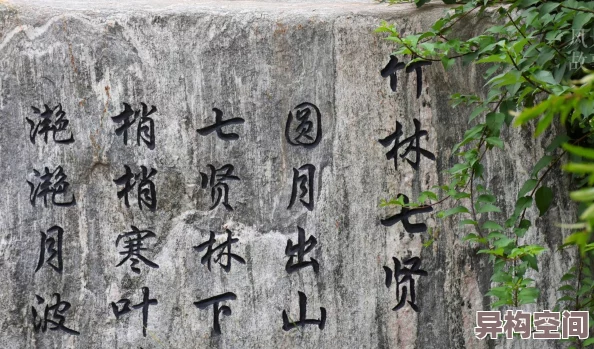 竹林七贤
圆月出山
七贤林下
梢梢寒叶
滟滟月波
异构空间